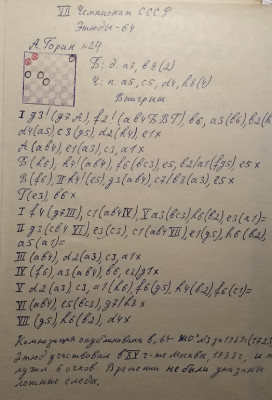 VII Чемпионат СССР
Этюды-64
А. Горин №24
Б: д. а7, b8 (2)
Ч: п. а5, c5, d4, h8 (4)
Выигрыш
I g3! (g7 A), f2! (ab4 БВГ), b6, a3 (b6), b2 (h
d4 (a5), c3 (g5), d2 (h4), e1x
А (ab4), e1 (a3), c3, a1x
Б (h6), h4! (ab4), f6 (bc3), e5, b2/a1 (fg5), e5x
В (f6), II h4! (c5), g3 (ab4), c7/b8 (a3), e5x
Г (e3), b6x
I f4 (g7 III), c1 (ab4 IV), V a3 (bc3) h6 (b2), e3 (a1)=
II g3 (cb4 VI), e3 (c3), c1 (ab4 VII), e1 (g5), h6 (b2),
a5 (a1)=
III (ab4), d2 (a3), c3, a1x
IV (f6), a3 (ab4), b6, e2/g1x
V d2 (a3), c3, a1 (h6), f6 (g5), h4 (b2), f6 (c1)=
VI (ab4), e5 (bc3), g7/h8x
VII (g5), h6 (b2), d4x
Композиция опубликована в „64- №3 за 1989г (1723)
Этюд участвовал в XX г-те Москвы, 1988г, и
лучил 6 очков. Времени не были указаны
ложные следы.